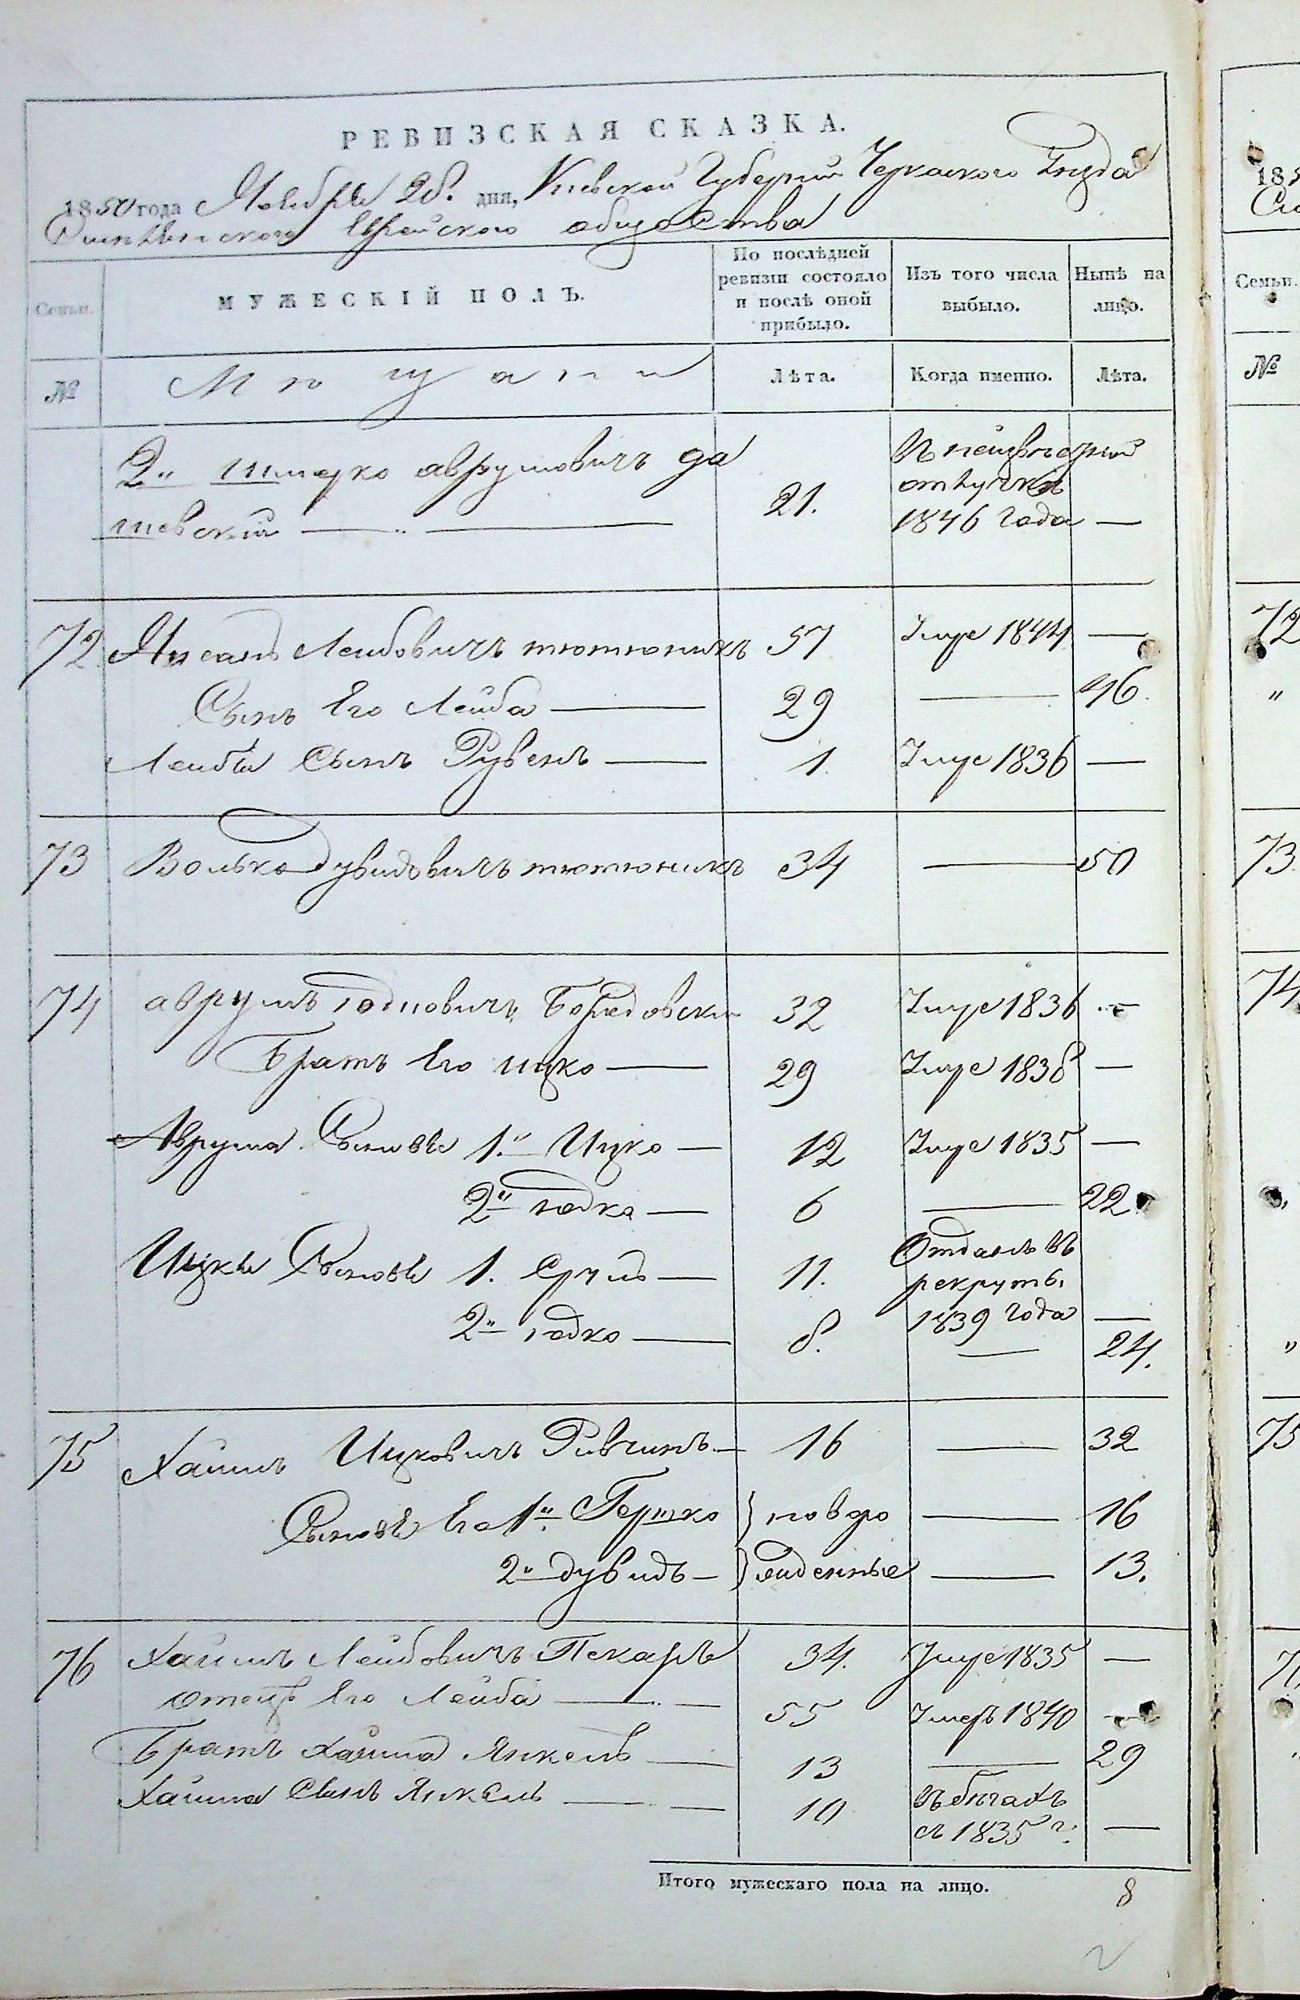 РЕВИЗСКАЯ СКАЗКА.
1850 года Ноября 28. дня, Киевской Губернии Черкаского Уезда
Еврейского общества
Семьи.
МУЖЕСКІЙ ПОЛЪ.
По послѣдней ревизіи состояло и послѣ оной прибыло.
Изъ того числа выбыло.
Нынѣ на лицо.
№
Мещане
Лѣта.
Когда именно.
Лѣта.
2й Шмерко Аврумовичъ Да 21. В неизвестной
шевскій отлучке
1846 года —
72 Лейбовичъ Тютюникъ 57 Умре 1844 —
Сынъ Его Лейба 29 — 46.
Лейбы Сынъ Рувенъ 1. Умре 1836 —
73 Волько Дувидовичъ Тютюникъ 34 — 50
74 Аврумъ Іодковичъ 32 Умре 1836 —
Братъ Его Ицко 29 Умре 1838 —
Аврума Сыновья 1й Ицко 12 Умре 1835 —
2й Іодко 6 — 22.
Ицки Сыновья 1. Сруль 11. Отданъ въ
рекруты.
1839 года —
2й Іодко 8. — 24.
75 Хаимъ Ицковичъ Ривчинъ 16 — 32
Сыновья Его 1й Гершко } новоро — 16
2й Дувидъ } жденные — 13.
76 Хаимъ Лейбовичъ Пекаръ 34. Умре 1835 —
Отецъ Его Лейба 55 Умеръ 1840 —
Братъ Хаима Янкель 13 — 29
Хаима Сынъ Янкель 10 Въ бегахъ
съ 1835 г. —
Итого мужескаго пола на лицо. 8
185
Семьи.
№
72
"
73
74
"
"
75